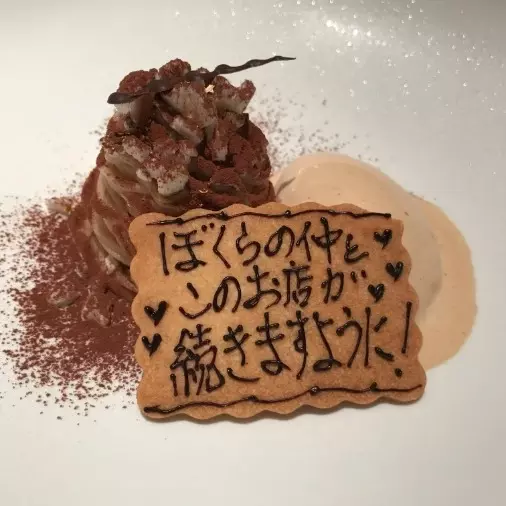 ぼくらの仲と
このお店が
続きますように!